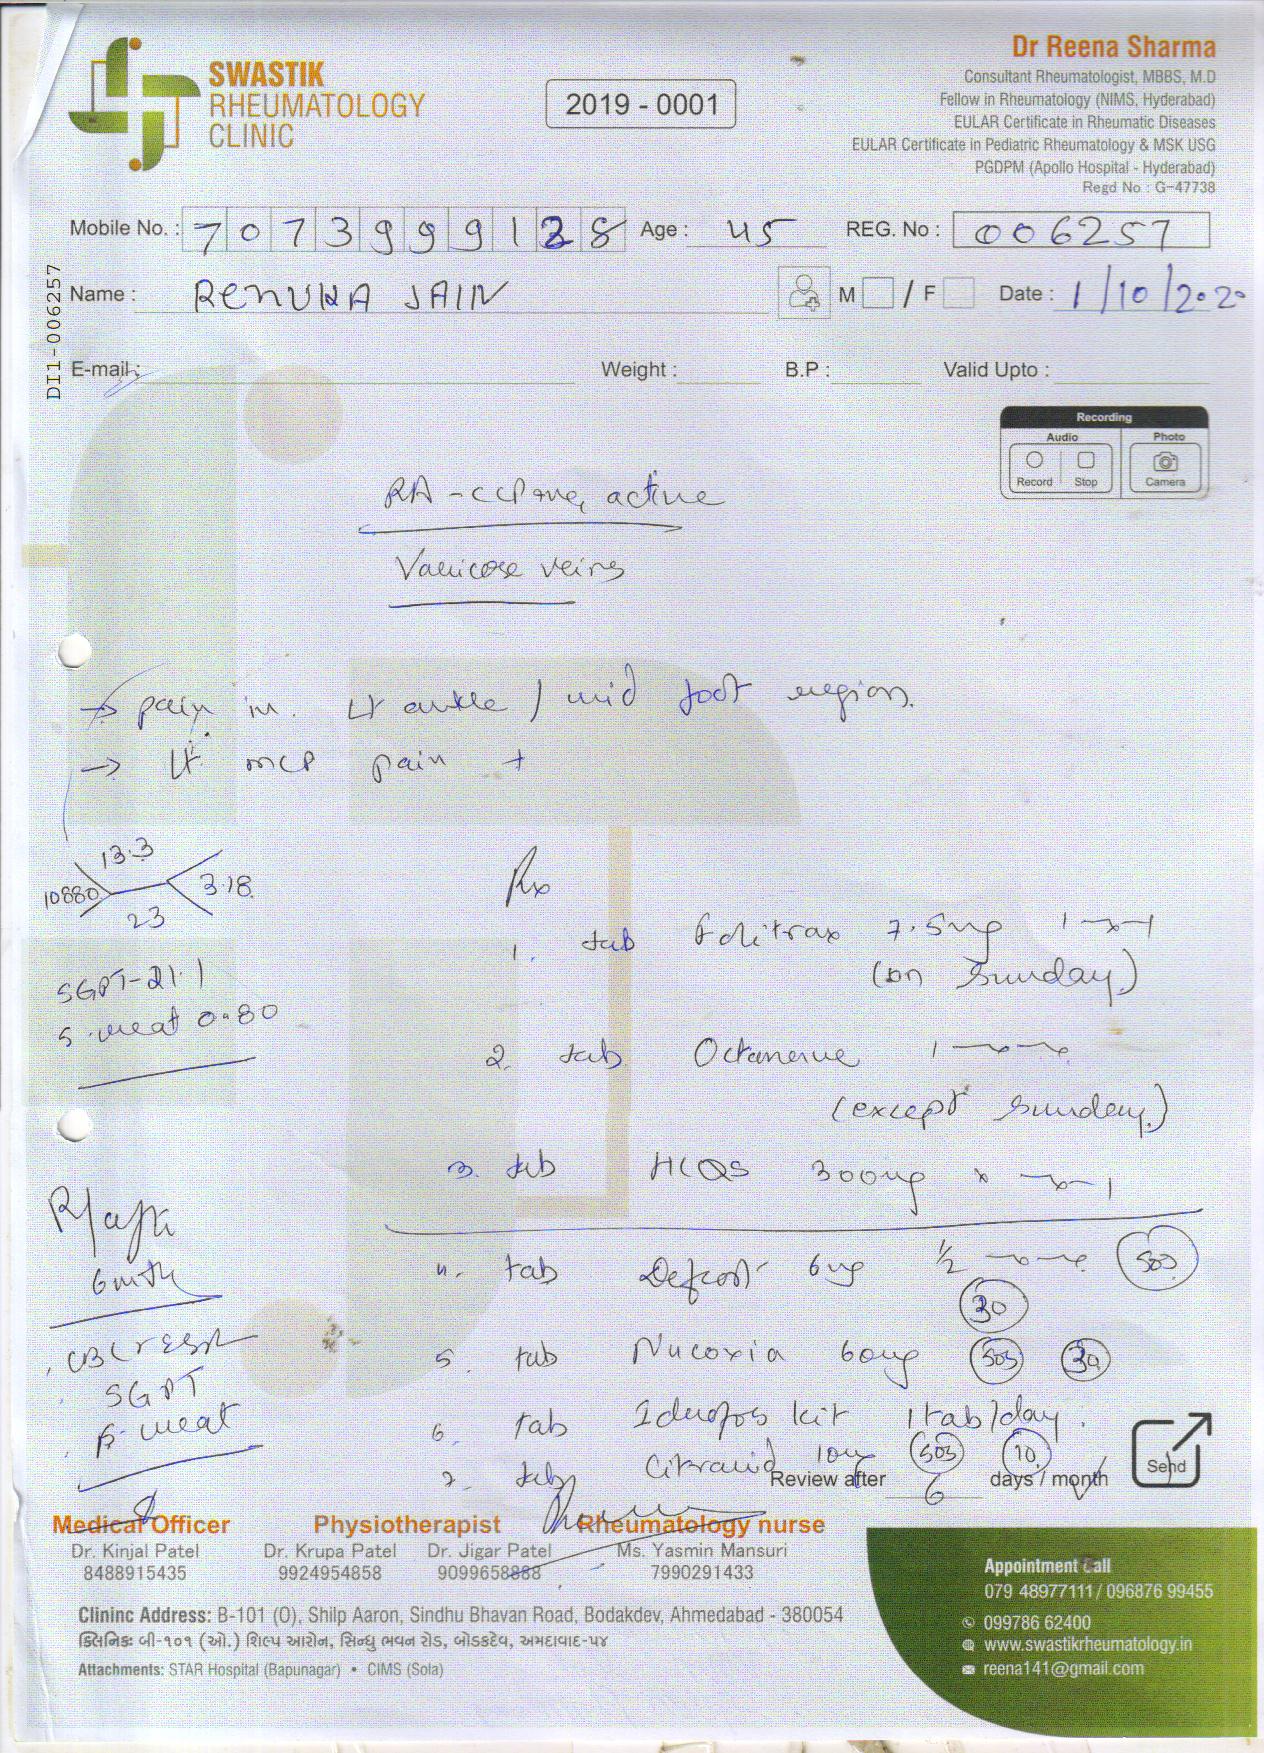 SWASTIK
RHEUMATOLOGY
CLINIC
2019 - 0001
Dr Reena Sharma
Consultant Rheumatologist, MBBS, M.D
Fellow in Rheumatology (NIMS, Hyderabad)
EULAR Certificate in Rheumatic Diseases
EULAR Certificate in Pediatric Rheumatology & MSK USG
PGDPM (Apollo Hospital - Hyderabad)
Regd No : G-47738
Mobile No. : 7073999128 Age : 45 REG. No : 006257
DI1-006257
Name : RENUKA JAIN M / F Date : 1/10/2020
E-mail : Weight : B.P : Valid Upto :
Recording
Audio Photo
Record Stop Camera
RA - CCP +ve, active
Varicose veins
→ pain in Lt ankle / mid foot region.
→ Lt MCP pain +
13.3
10880 3.18
23
SGPT-21.1
S. creat 0.80
Rx
1. tab Folitrax 7.5mg 1-x-1
(on Sunday)
2. tab Octanerve 1-x-x
(except Sunday)
3. tab HCQS 300mg x-x-1
R/aft
6mth
CBC ESR
SGPT
S. creat
4. tab Defcort 6mg ½-x-x SOS
30
5. tab Nucoxia 60mg SOS 30
6. tab kit 1tab/day.
7. tab 10mg SOS 10
Review after 6 days / month
Send
Medical Officer Physiotherapist Rheumatology nurse
Dr. Kinjal Patel Dr. Krupa Patel Dr. Jigar Patel Ms. Yasmin Mansuri
8488915435 9924954858 9099658888 7990291433
Clininc Address: B-101 (O), Shilp Aaron, Sindhu Bhavan Road, Bodakdev, Ahmedabad - 380054
ક્લિનિક: બી-૧૦૧ (ઓ.) શિલ્પ આરોન, સિન્ધુ ભવન રોડ, બોડકદેવ, અમદાવાદ-૫૪
Attachments: STAR Hospital (Bapunagar) • CIMS (Sola)
Appointment Call
079 48977111 / 096876 99455
099786 62400
www.swastikrheumatology.in
reena141@gmail.com